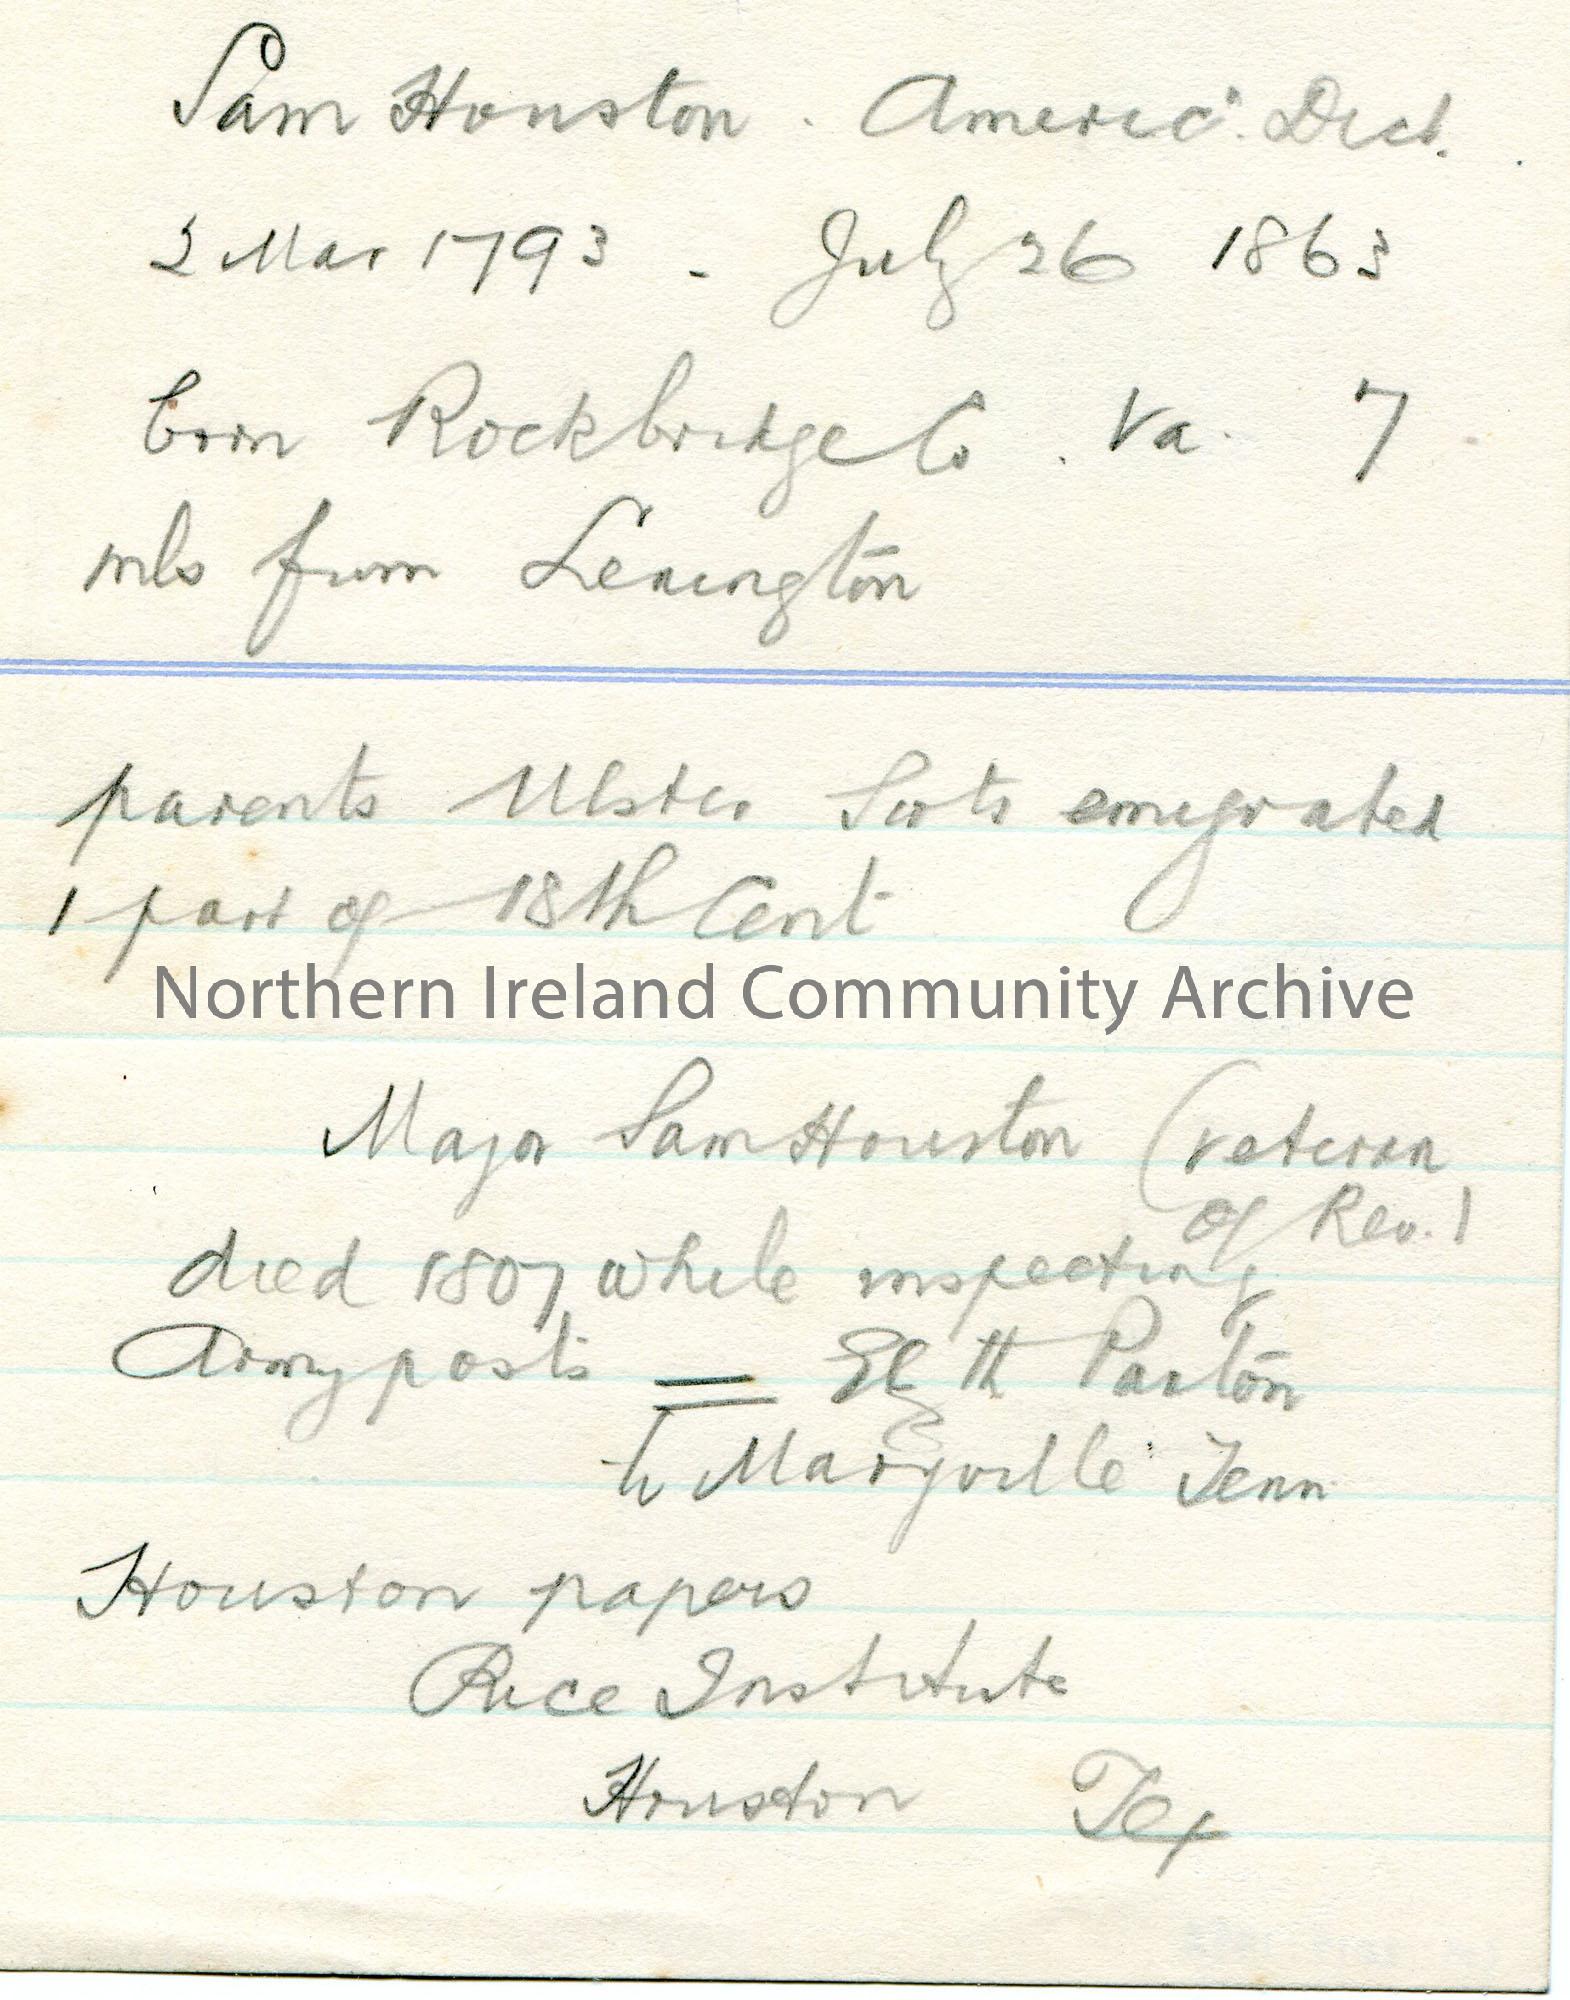 Sam Houston . Americ. Dict.
2 Mar 1793 - July 26 1863
born Rockbridge Co . Va. 7
mls from Lexington
parents Ulster Scots emigrated
1 part of 18th Cent
Northern Ireland Community Archive
Major Sam Houston (veteran
of Rev.)
died 1807 while inspecting
Army posts = Elizth Paxton
to Maryville Tenn
Houston papers
Rice Institute
Houston Tex